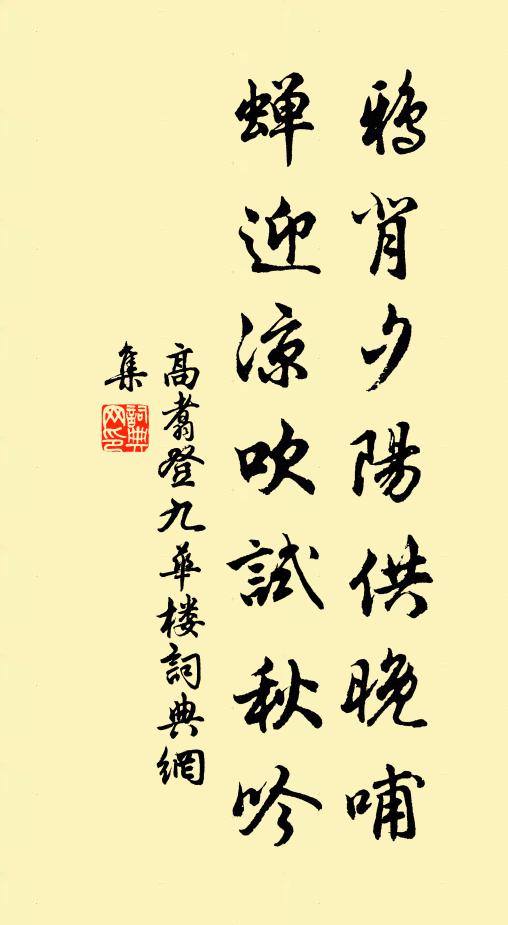 鴉背夕陽供晚哺
蝉迎涼吹試秋吟
高翥登九華楼詞典網
集
詞典
网印